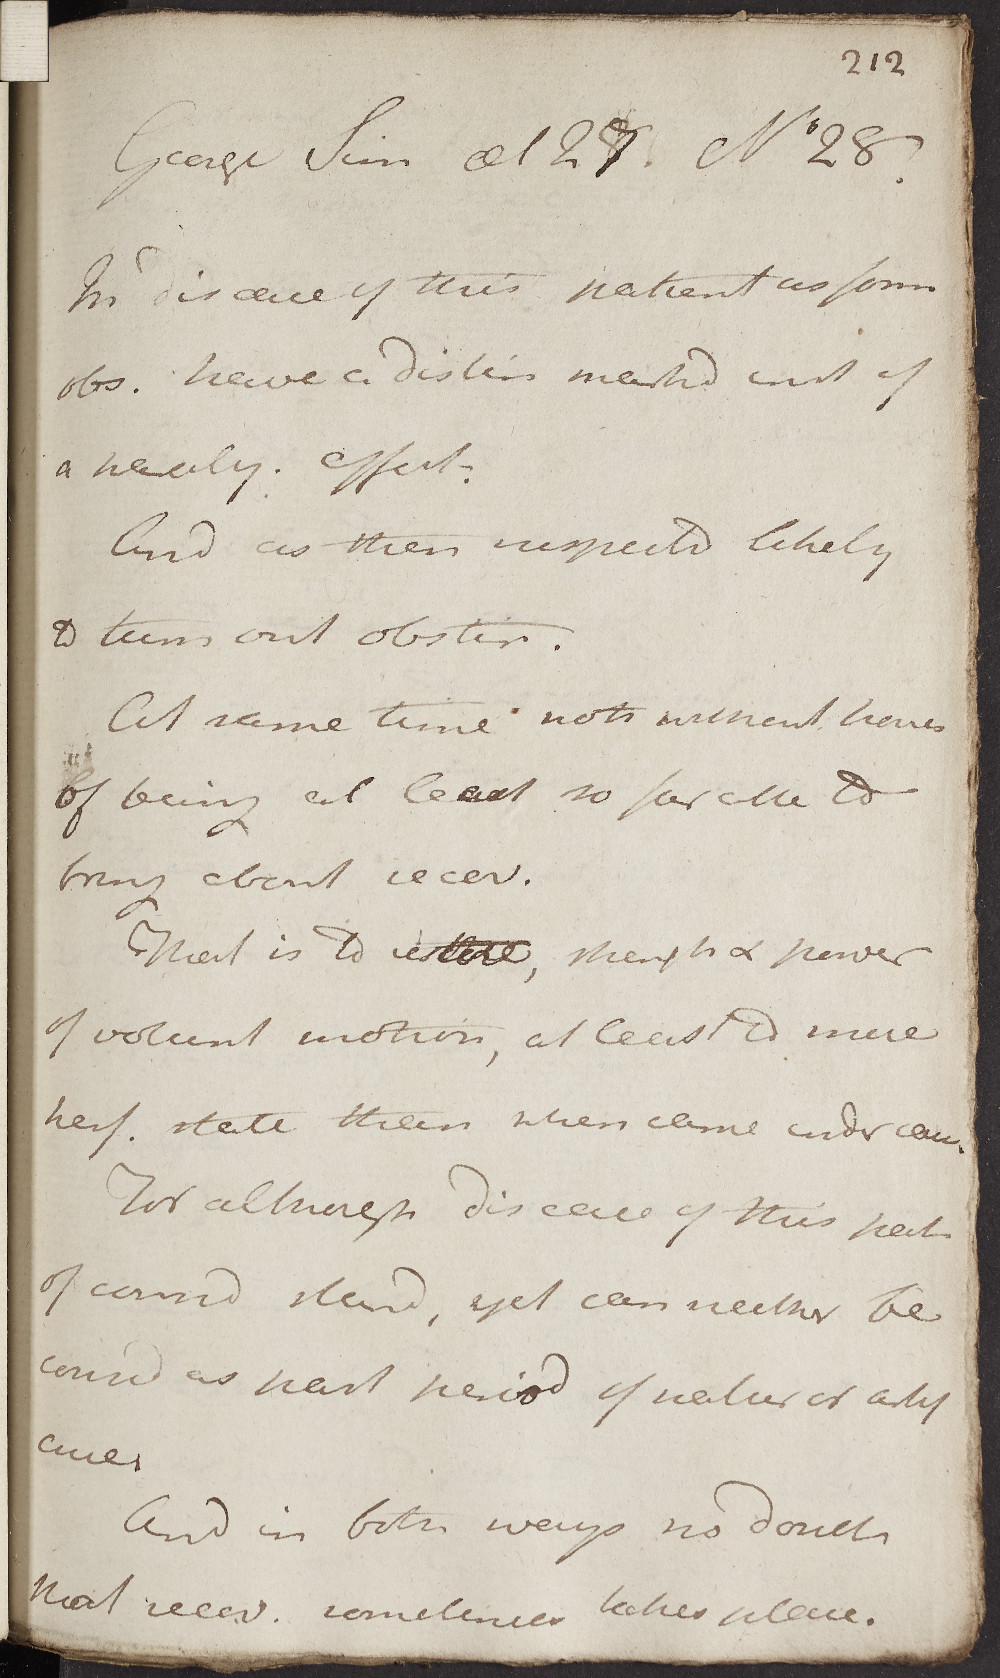 212
George Sim æt 27. No 28.
In disease of this patient as form
obs. have a distin markd inst of
a paraly. affect.
And as then suspectd likely
to turn out obstin.
At same time not without hopes
of being at least so far able to
bring about recov.
That is to restore, strength & power
of volunt motion, at least to more
perf. state than when came under care.
For although disease of this pat
of consid stand, yet can neither be
consid as past period of natur or artif
cure.
And in both ways no doubt
that recov. sometimes takes place.